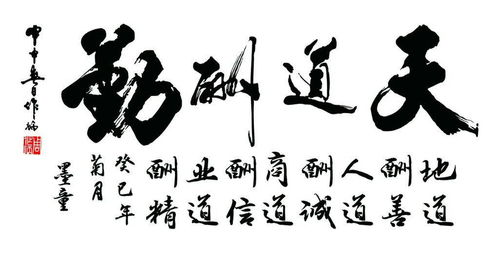 天道酬勤
地道
酬善
人道
酬诚
商道
酬信
业道
酬精
癸巳年
菊月
墨童
甲申